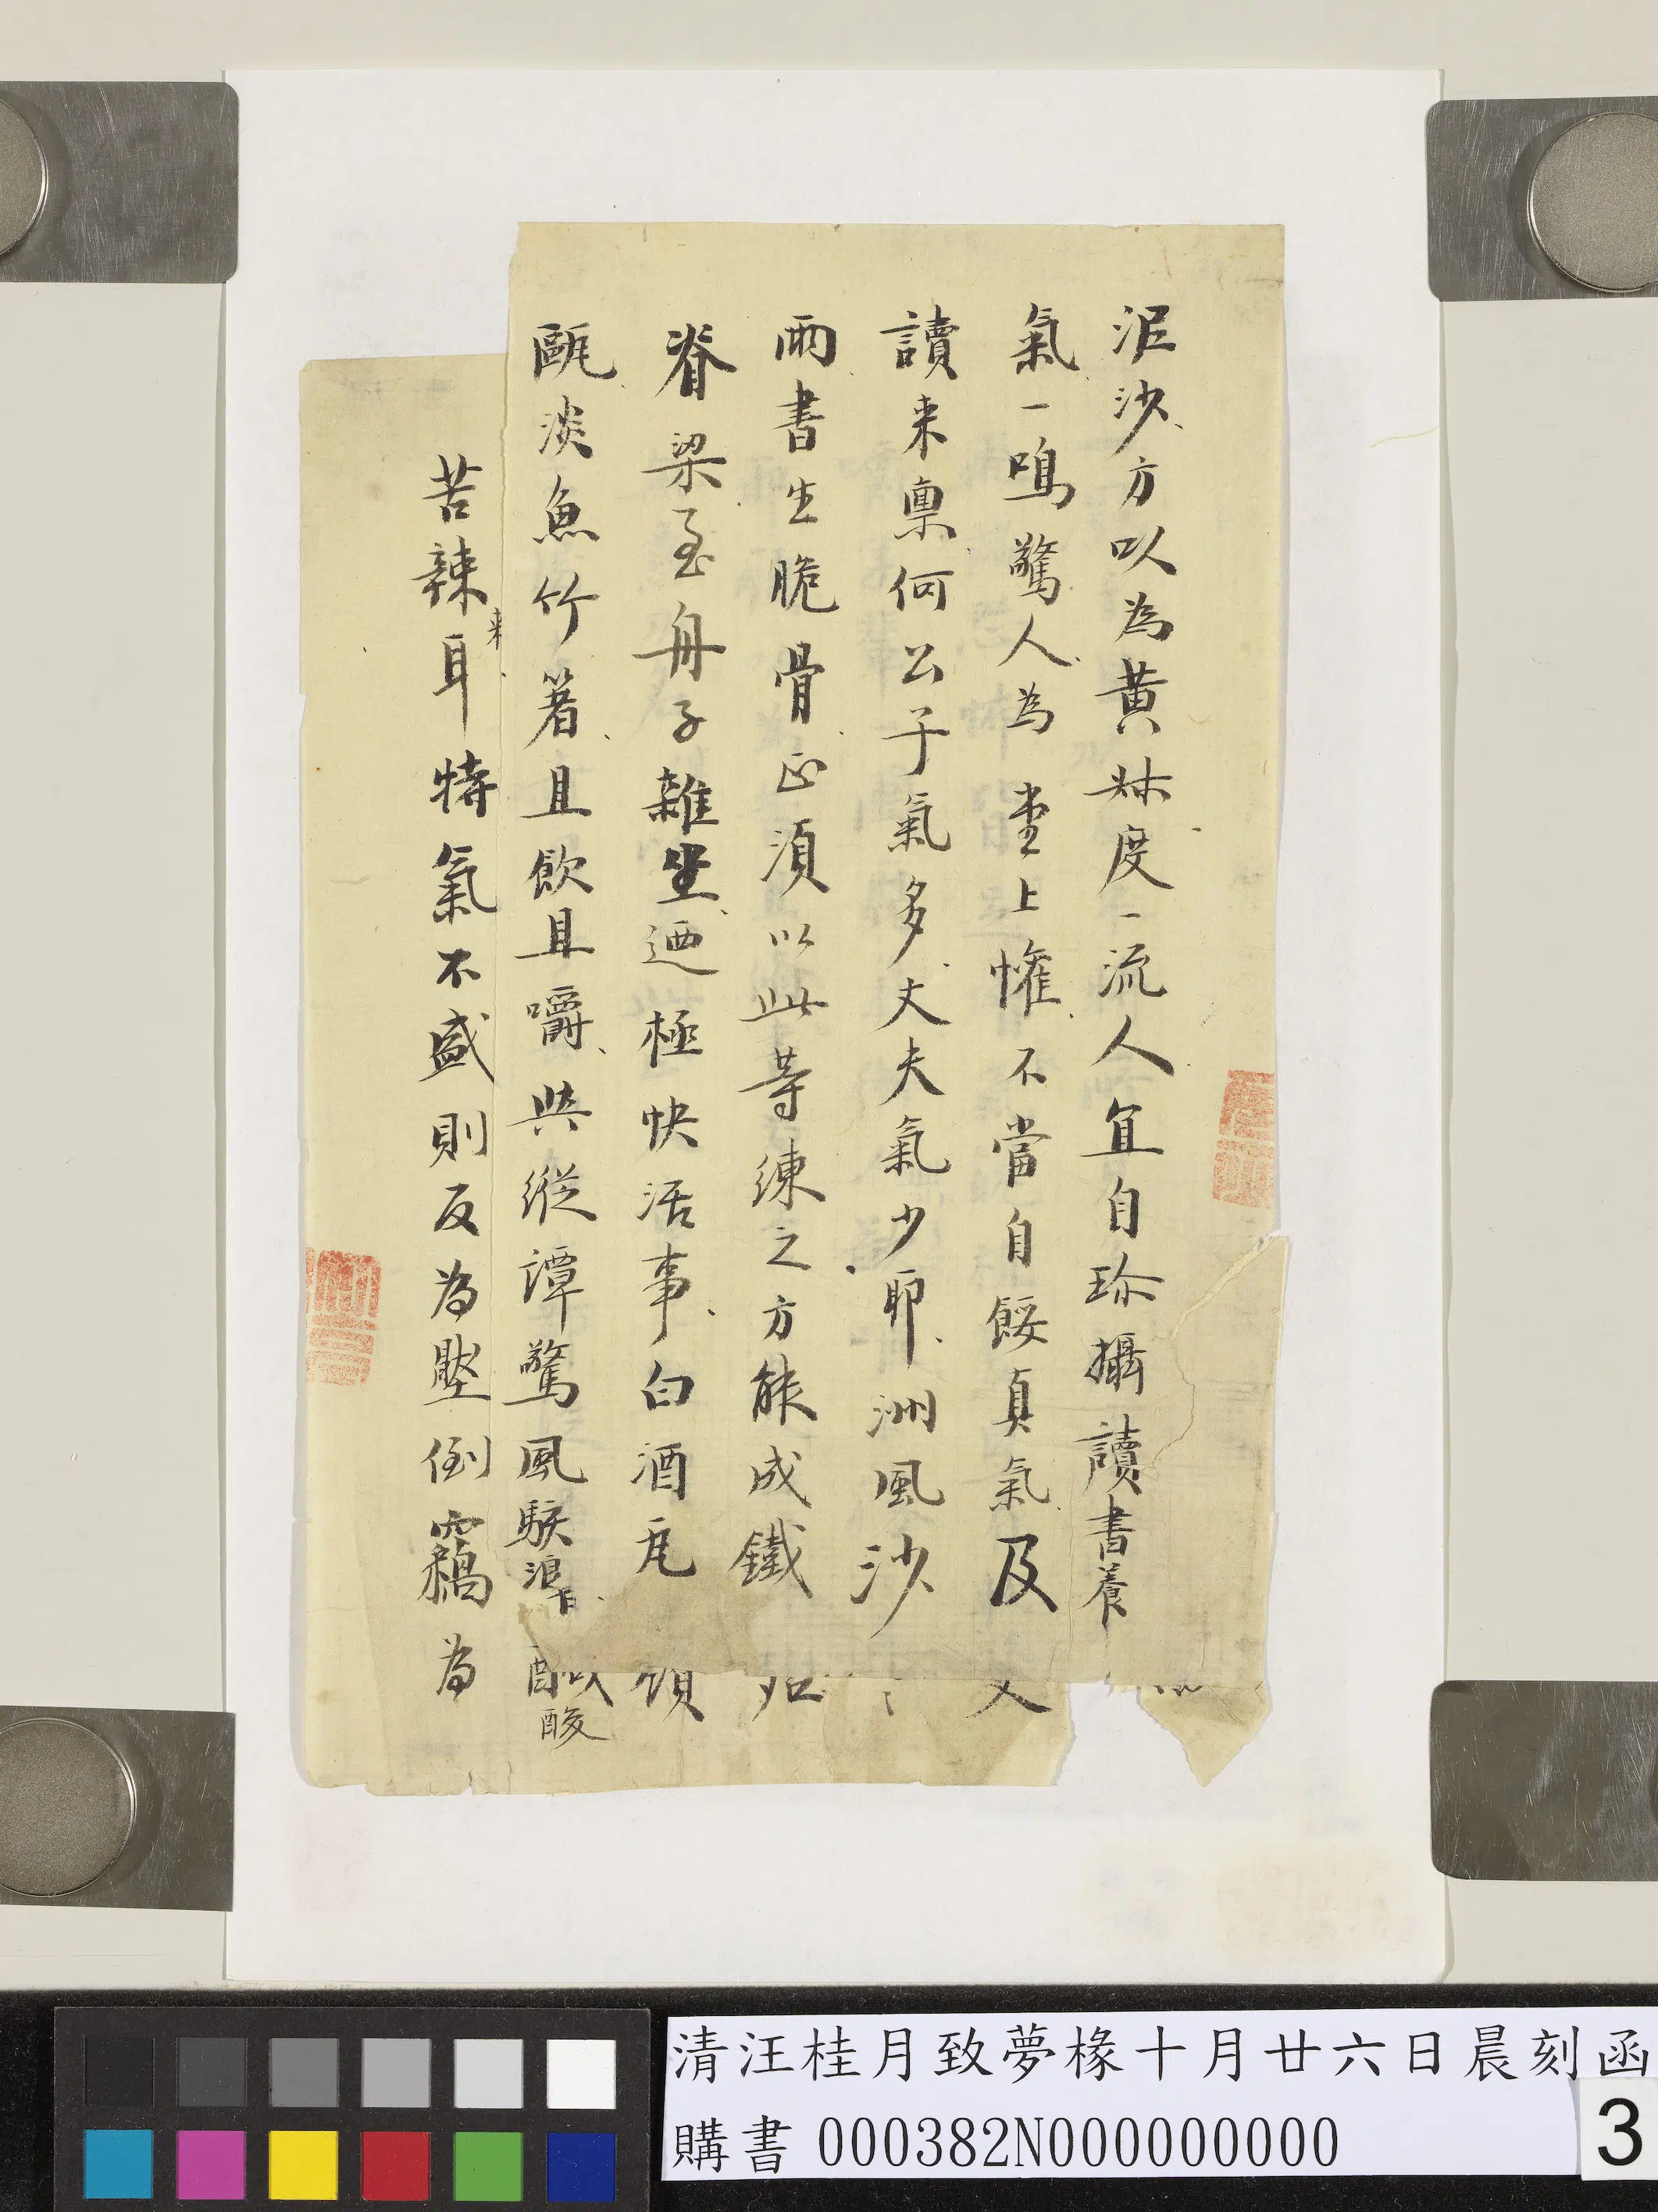 泥沙方以為黃叔度一流人宜自珍攝讀書養
氣一鳴驚人為堂上懽不當自餒真氣及
讀来稟何公子氣多丈夫氣少耶洲風沙
兩書生脆骨正須以此等練之方能成鐵
脊梁至舟子雜坐迺極快活事白酒瓦
甌淡魚竹箸且飲且嚼與縱譚驚風駭浪
鹹酸
苦辣来耳特氣不盛則反為豎倒竊為
清汪桂月致夢椽十月廿六日晨刻函
購書 000382N000000000
3